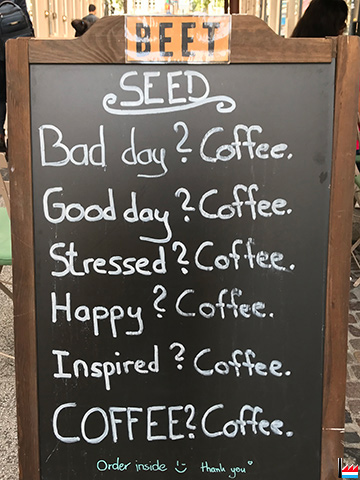 BEET
SEED
Bad day? Coffee.
Good day? Coffee.
Stressed? Coffee.
Happy? Coffee.
Inspired? Coffee.
COFFEE? Coffee.
Order inside :) thank you♡